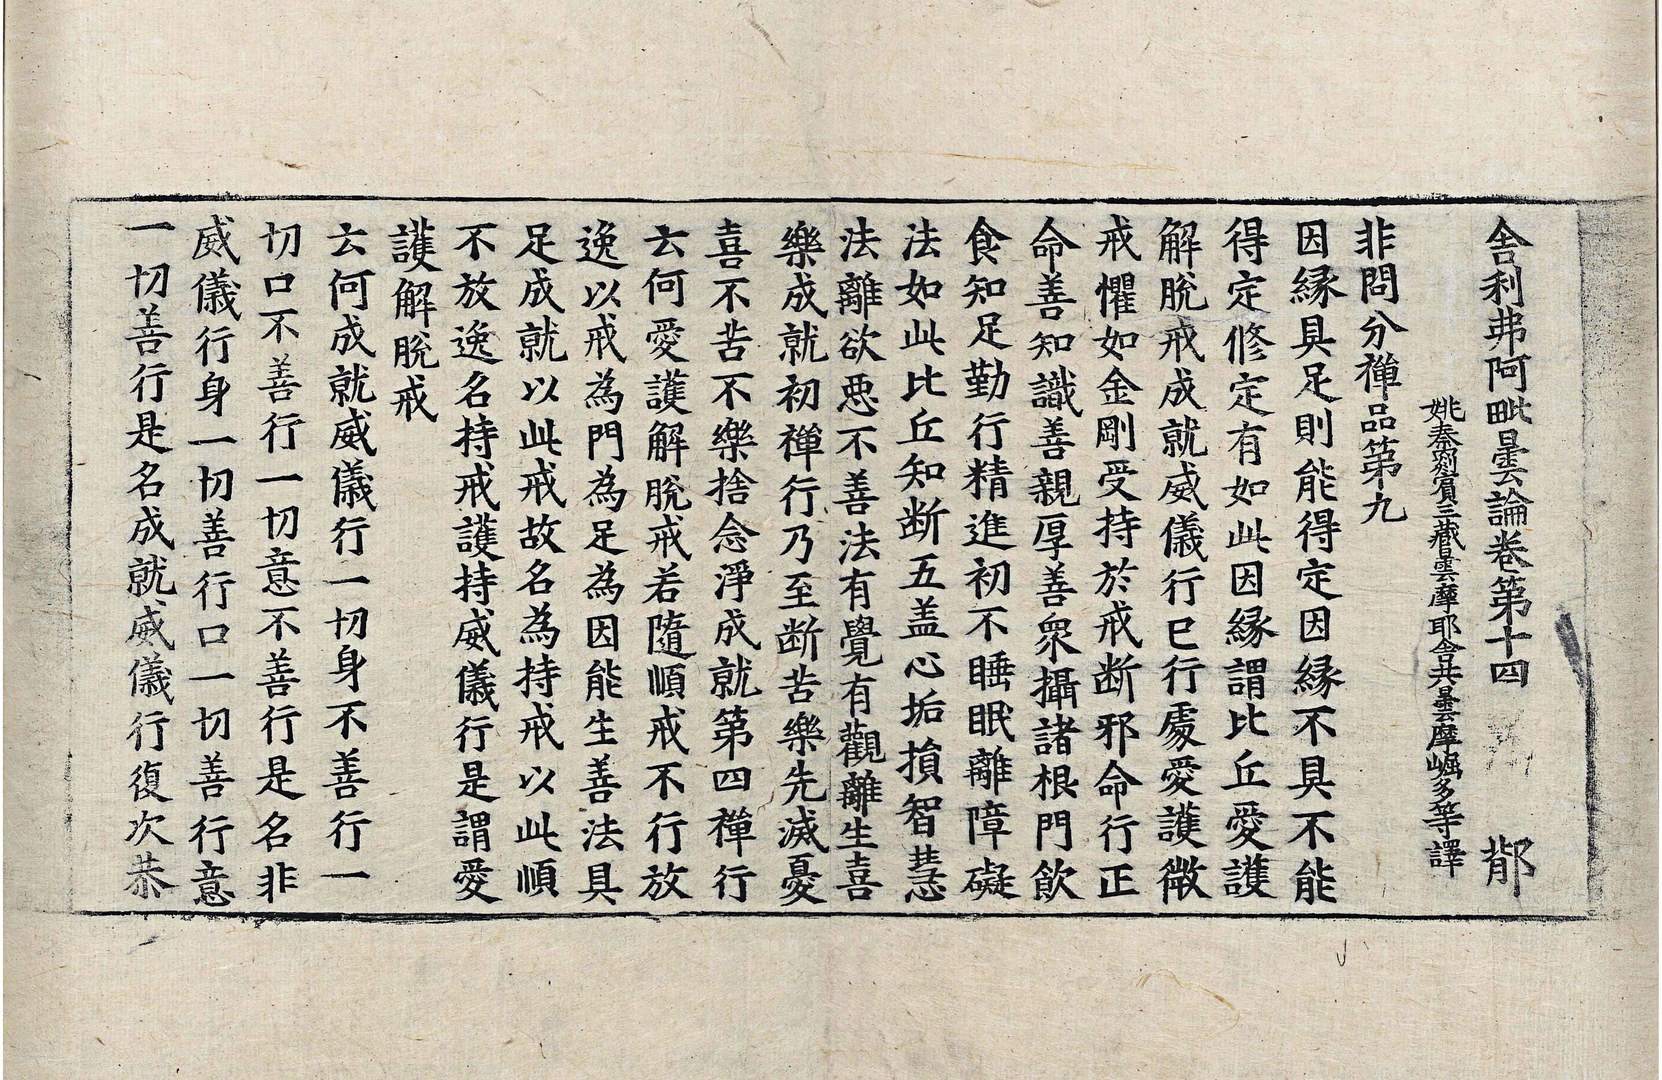 舎利弗阿毗曇論卷第十四 鄁
姚秦罽賓三藏曇摩耶舍共曇摩崛多等譯
非問分禪品第九
因縁具足則能得定因縁不具不能
得定修定有如此因縁謂比丘愛護
解脫戒成就威儀行已行處愛護微
戒懼如金剛受持於戒断邪命行正
命善知識善親厚善衆攝諸根門飲
食知足勤行精進初不睡眠離障礙
法如此比丘知断五盖心垢損智慧
法離欲惡不善法有覺有觀離生喜
樂成就初禪行乃至断苦樂先滅憂
喜不苦不樂捨念淨成就第四禪行
云何愛護解脫戒若隨順戒不行放
逸以戒為門為足為因能生善法具
足成就以此戒故名為持戒以此順
不放逸名持戒護持威儀行是謂愛
護解脫戒
云何成就威儀行一切身不善行一
切口不善行一切意不善行是名非
威儀行身一切善行口一切善行意
一切善行是名成就威儀行復次恭